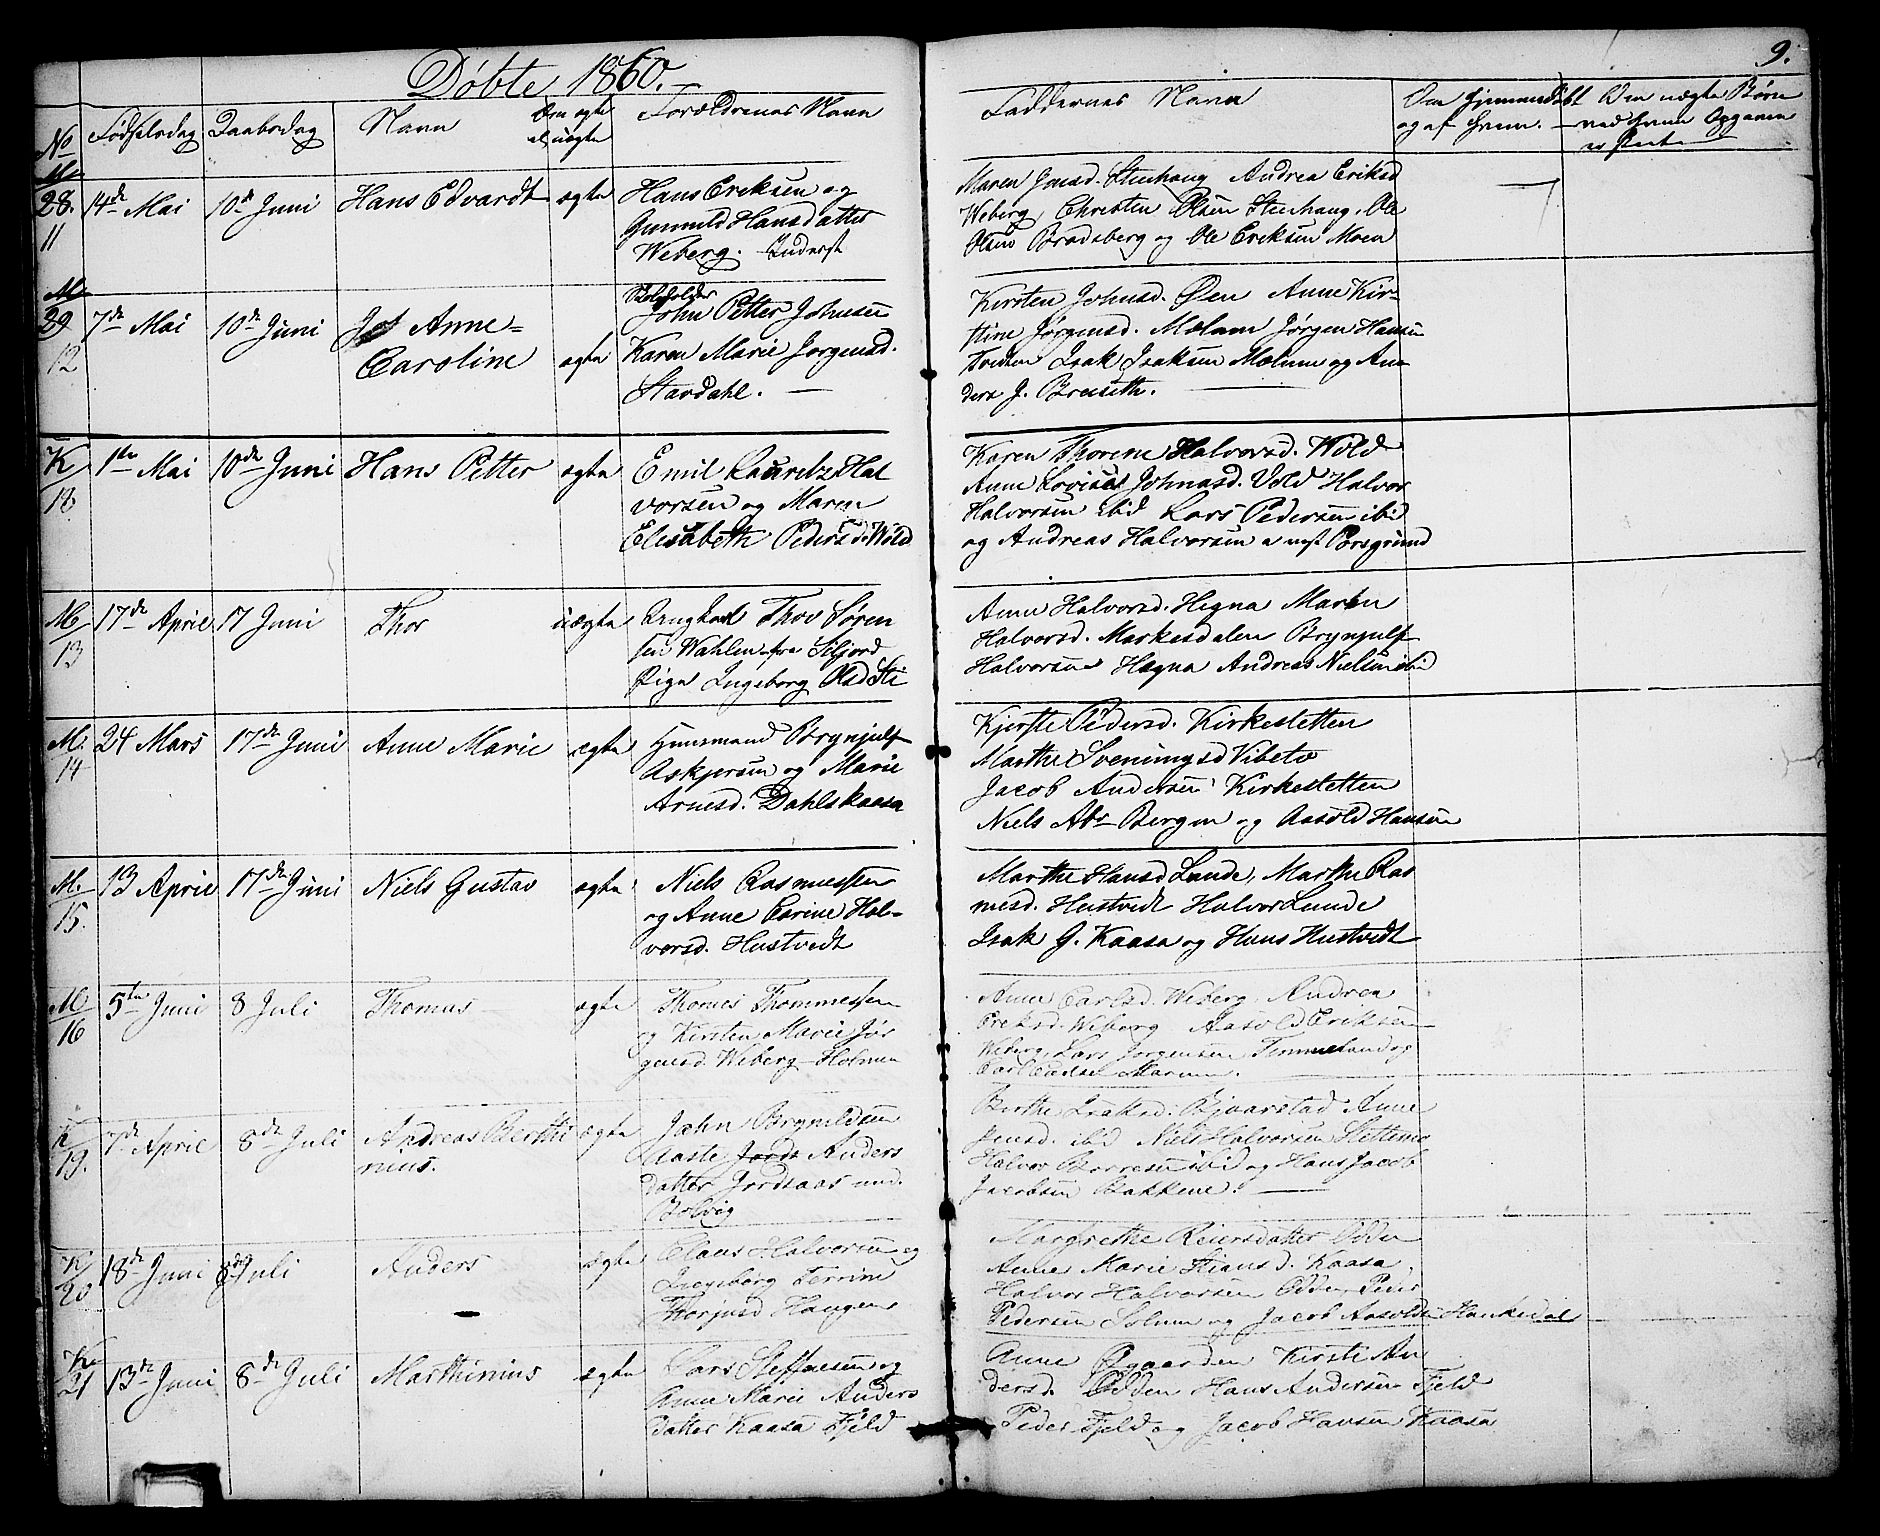 Døbte 1860.
9.
No
Fødselsdag
Daabsdag
Navn
Om ægte
el. uægte
Forældrenes Navn
Faddernes Navn
Om hjemmedøbt
og af hvem.
Om uægte Børn
ved hvem Opgaven
er skeet
28.
11
14de Mai
10de Juni
Hans Edvardt
ægte
Hans Eriksen og
Gunnild Hansdatter
Weberg. Inderst
Maren Jensd. Steehaug Andrea Eriksd
Weberg, Christen Olsen Steehaug, Ole
Olsen Bradsberg og Ole Eriksen Moen
M
29
12
7de Mai
10de Juni
Anne
Caroline
ægte
Skoleholder
John Petter Johnsen
Karen Marie Jørgensd.
Stavdahl.
Kirsten Johnsd. Øen Anne Kir-
stine Jørgensd. Mælum Jørgen Hansen
Tvedten Isak Isaksen Mælum og An-
ders J. Breiseth.
K
18
1te Mai
10de Juni
Hans Petter
ægte
Emil Lauritz Hal
vorsen og Maren
Elisabeth Pedersd. Wold
Karen Thorine Halvorsd. Wold
Anne Lovise Johnasd. Vold Halvor
Halvorsen ibid Lars Pedersen ibid
og Andreas Halvorsen Porsgrund
M
13
17de April
17 Juni
Thor
uægte
Ungkarl Thov Søren
sen Wahlen fra Siljord
Pige Ingeborg Olsd Sti
Anne Halvorsd. Hegna Maren
Halvorsd. Markesdalen Brynjulf
Halvorsen Hægna Andreas Nielsen ibid
M.
14
24 Mars
17de Juni
Anne Marie
ægte
Huusmand Brynjulf
Askjersen og Marie
Arnesd. Dahlskaasa
Kjerste Pedersd. Kirkestetten
Marthe Sveningsd Vibeto
Jacob Andersen Kirkestetten
Niels Abr Bergen og Aasold Hansen
M.
15.
13 April
17de Juni
Niels Gustav
ægte
Niels Rasmussen
og Anne Carine Hal-
vorsd. Hustvedt
Marthe Hansd Lunde, Marthe Ras
mesd. Hustvedt Halvor Lunde
Isak J. Kaasa og Hans Hustvedt
M
16
5te Juni
8 Juli
Thomas
ægte
Thomes Thommessen
og Kirsten Marie Jør
gensd. Weberg-Holmen
Anne Carlsd. Weberg, Andrea
Eriksd. Weberg Aasold Eriksen
Weberg, Lars Jørgensen Temmeland og
K
19.
7de April
8de Juli
Andreas Berthi
nius.
ægte
John Brynildsen
Aaste Anders
datter Jordsaas und.
Bolvig
Berthe Isaksd. Bjaarstad Anne
Jensd. ibid Niels Halvorsen Slettemo
Halvor Borresen ibid og Hans Jacob
Jacobsen Bakkene.
K
20
18de Juni
8de Juli
Anders
ægte
Claus Halvorsen og
Ingeborg Terrine
Thorjusd Haugen
Margrethe Reiersdatter Odden
Anne Marie Stiansd. Kaasa,
Halvor Halvorsen Odden Peder
Pedersen Solum og Jacob Aasolds. Hankedal
K
21
13de Juni
8de Juli
Marthinius
ægte
Lars Steffensen og
Anne Marie Anders
datter Kaasa Fjeld
Anne Øgaarden Kirsti An
dersd. Odden Hans Andersen Fjeld
Peder Fjeld og Jacob Hansen Kaasa